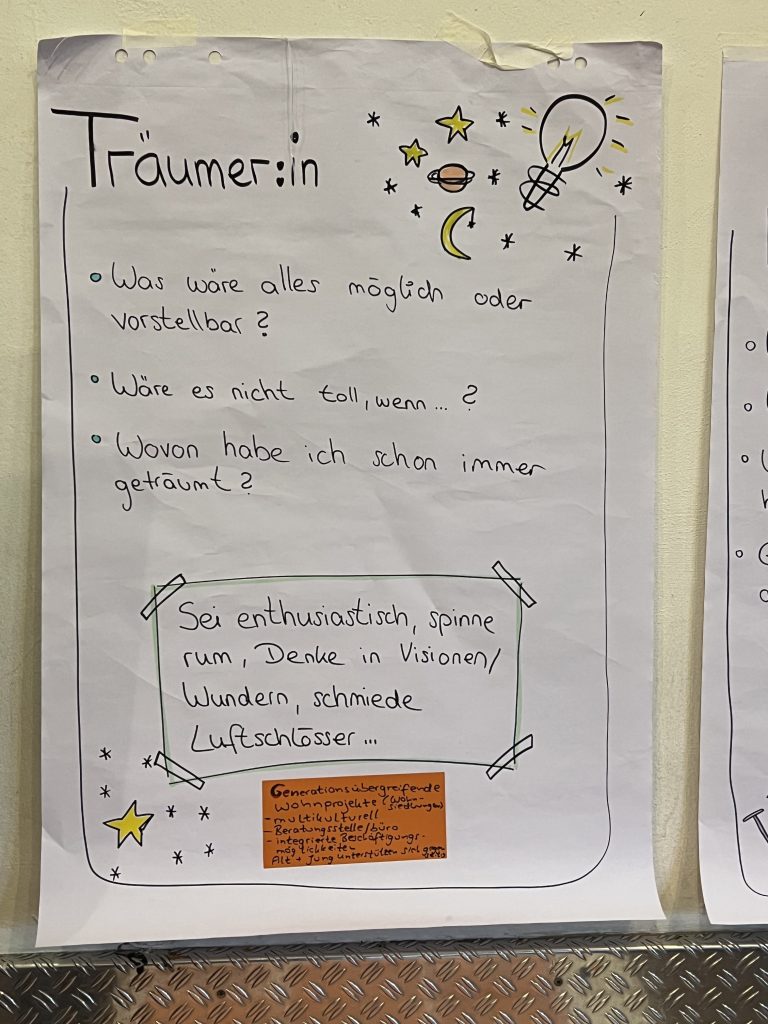 Träumer:in
• Was wäre alles möglich oder
vorstellbar?
• Wäre es nicht toll, wenn... ?
• Wovon habe ich schon immer
geträumt?
Sei enthusiastisch, spinne
rum, Denke in Visionen/
Wundern, schmiede
Luftschlösser...
Generationsübergreifende
Wohnprojekte (Wohn-
siedlungen)
- multikulturell
- Beratungsstelle/büro
- integrierte Beschäftigungs-
möglichkeiten
Alt + Jung unterstützen sich